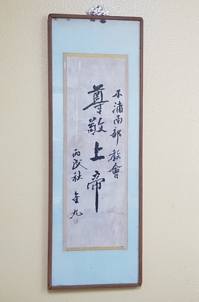 木浦南部教會
尊敬上帝
丙戌秋 金九